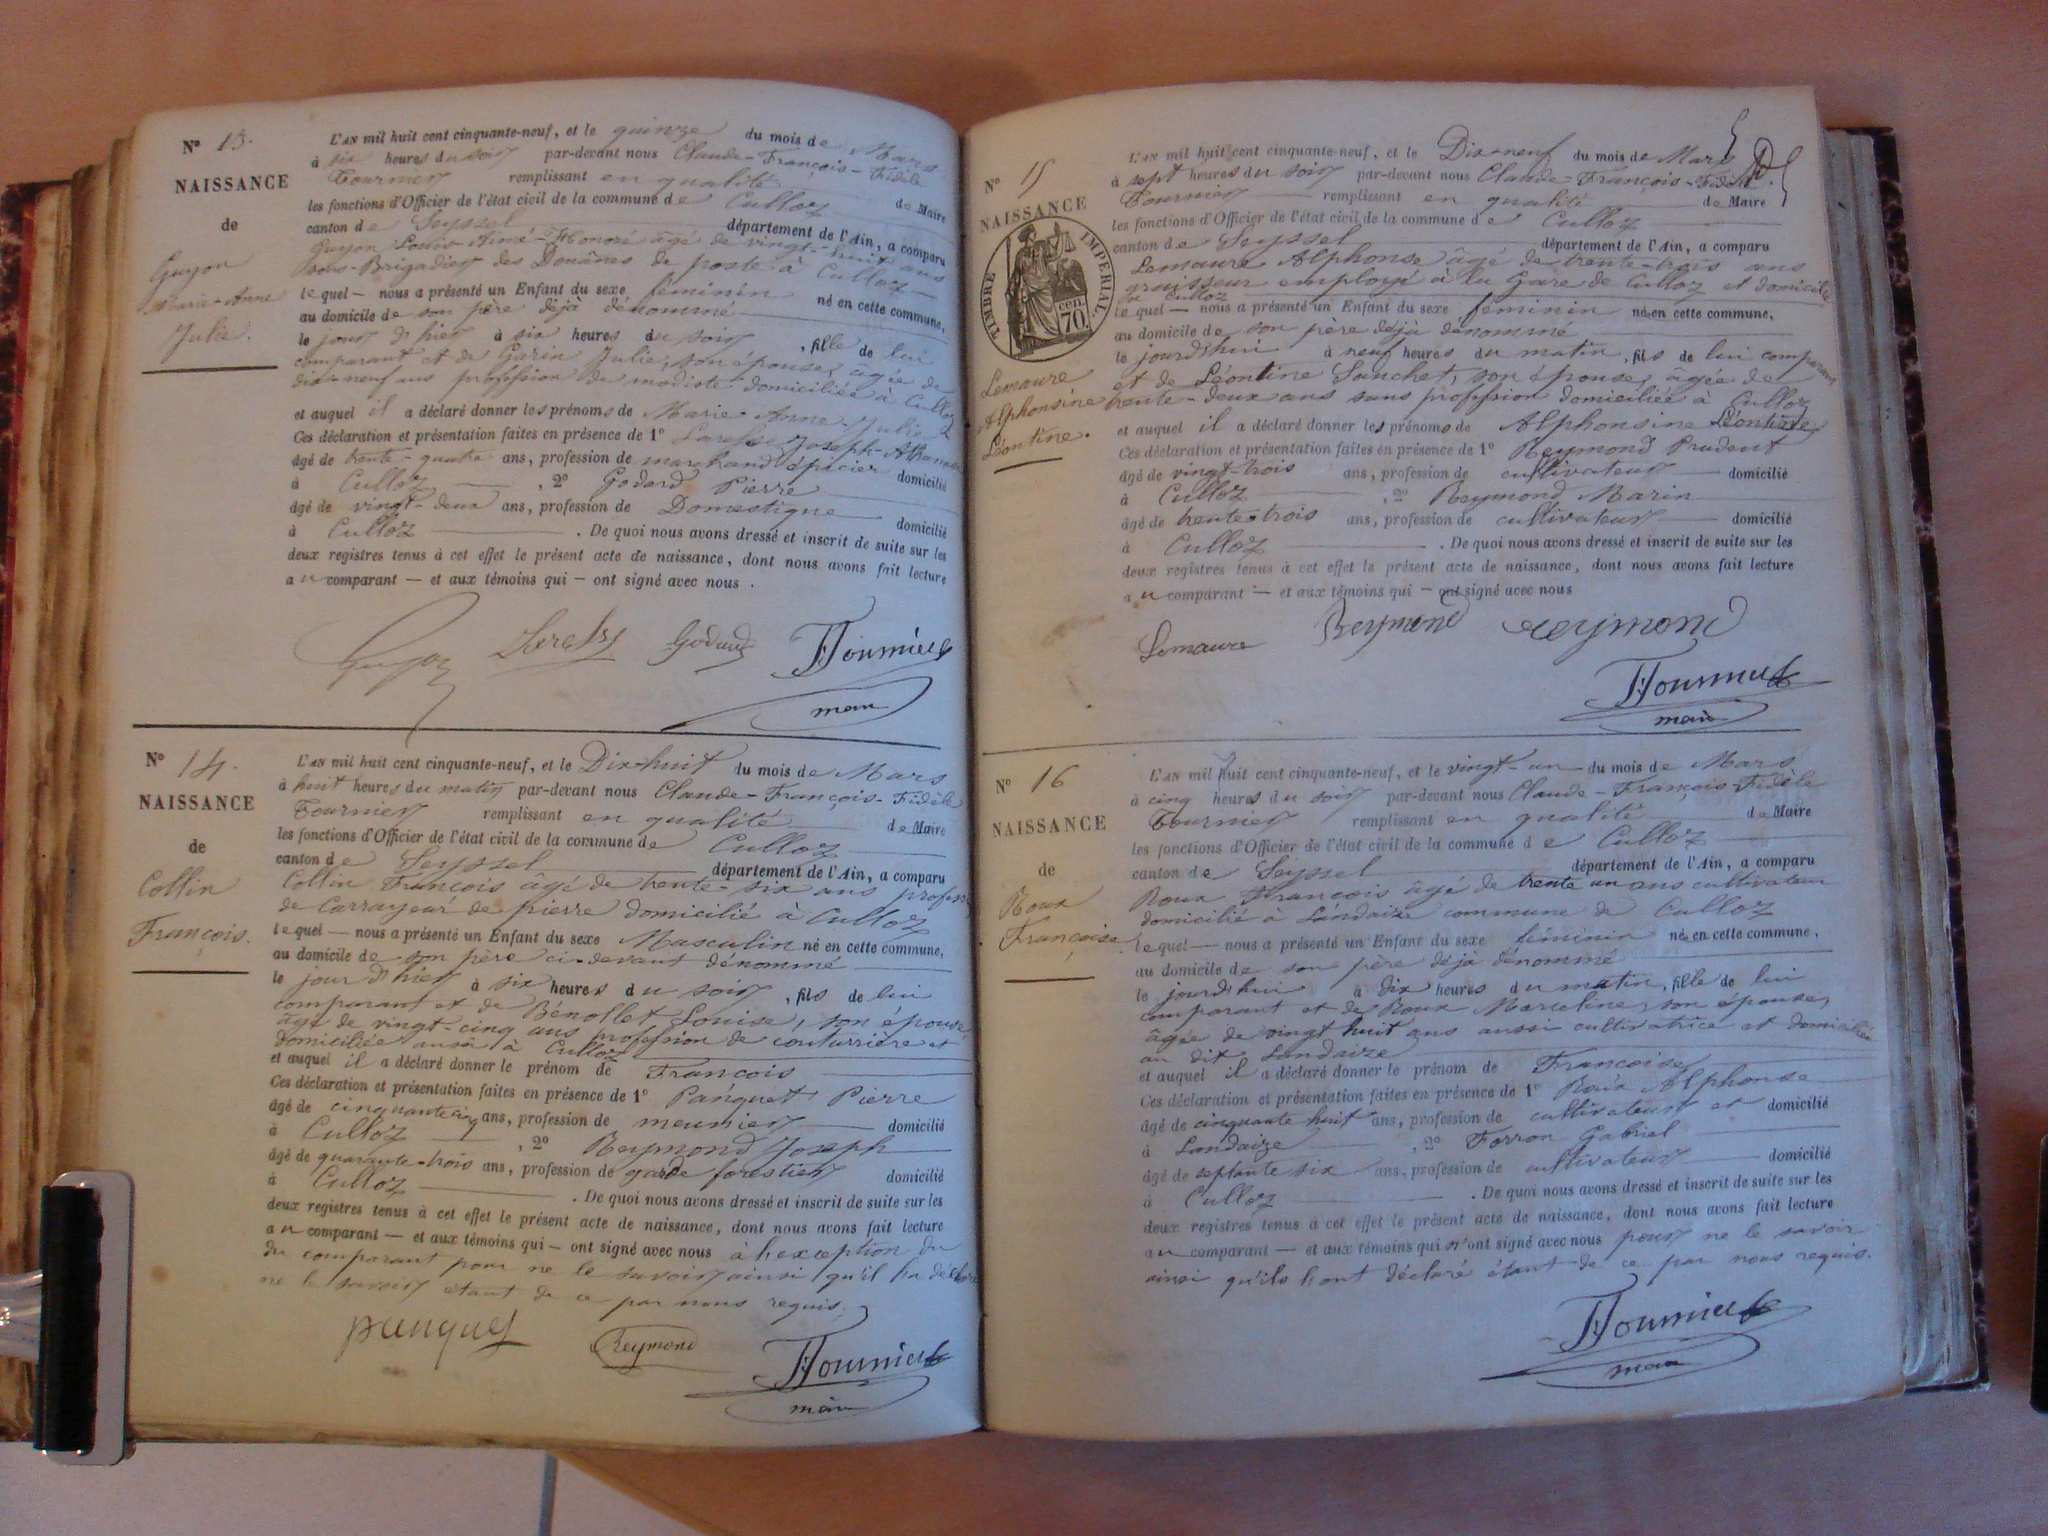 Nº 13.
NAISSANCE
de
Guyon
Marie-Anne
Julie.
L'AN mil huit cent cinquante-neuf, et le quinze du mois de Mars
à six heures du soir par-devant nous Claude-François-Fidèle
Fournier remplissant en qualité de Maire
les fonctions d'Officier de l'état civil de la commune de Culloz
canton de Seyssel département de l'Ain, a comparu
Guyon Louis-Aimé-Honoré âgé de vingt-huit ans
sous-Brigadier des Douânes de poste à Culloz
lequel — nous a présenté un Enfant du sexe féminin né en cette commune,
au domicile de son père déjà dénommé
le jour d'hier à six heures du soir, fille de lui
comparant et de Garin Julie, son épouse, âgée de
dix-neuf ans profession de modiste domiciliée à Culloz
et auquel il a déclaré donner les prénoms de Marie-Anne-Julie
Ces déclaration et présentation faites en présence de 1º Joseph-
âgé de trente-quatre ans, profession de marchand épicier domicilié
à Culloz, 2º Godard Pierre
âgé de vingt-deux ans, profession de Domestique domicilié
à Culloz. De quoi nous avons dressé et inscrit de suite sur les
deux registres tenus à cet effet le présent acte de naissance, dont nous avons fait lecture
au comparant — et aux témoins qui — ont signé avec nous.
Guyon Godard Fournier
maire
Nº 14.
NAISSANCE
de
Collin
François.
L'AN mil huit cent cinquante-neuf, et le Dix-huit du mois de Mars
à huit heures du matin par-devant nous Claude-François-Fidèle
Fournier remplissant en qualité de Maire
les fonctions d'Officier de l'état civil de la commune de Culloz
canton de Seyssel département de l'Ain, a comparu
Collin François âgé de trente-six ans profession
de Carrayeur de pierre domicilié à Culloz
lequel — nous a présenté un Enfant du sexe Masculin né en cette commune,
au domicile de son père ci-devant dénommé
le jour d'hier à six heures du soir, fils de lui
comparant et de Bénollet Louise, son épouse
âgé de vingt-cinq ans profession de couturrière et
domiciliée aussi à Culloz
et auquel il a déclaré donner le prénom de François
Ces déclaration et présentation faites en présence de 1º Panquet Pierre
âgé de cinquante cinq ans, profession de meunier domicilié
à Culloz, 2º Reymond Joseph
âgé de quarante-trois ans, profession de garde forestier domicilié
à Culloz. De quoi nous avons dressé et inscrit de suite sur les
deux registres tenus à cet effet le présent acte de naissance, dont nous avons fait lecture
au comparant — et aux témoins qui — ont signé avec nous à l'exception du
du comparant pour ne le savoir ainsi qu'il l'a déclaré
ne le savoir étant de ce par nous requis.
panquet Reymond Fournier
maire
Nº 15
NAISSANCE
TIMBRE IMPERIAL
70. cen.
Lemaure
Alphonsine
Léontine.
L'AN mil huit cent cinquante-neuf, et le Dix-neuf du mois de Mars
à sept heures du soir par-devant nous Claude-François-Fidèle
Fournier remplissant en qualité de Maire
les fonctions d'Officier de l'état civil de la commune de Culloz
canton de Seyssel département de l'Ain, a comparu
Lemaure Alphonse âgé de trente-trois ans
graisseur employé à la Gare de Culloz et domicilié
à Culloz
lequel — nous a présenté un Enfant du sexe féminin né en cette commune,
au domicile de son père déjà dénommé
le jourd'hui à neuf heures du matin, fils de lui comparant
et de Léontine Sanchet, son épouse, âgée de
trente-deux ans sans profession domiciliée à Culloz
et auquel il a déclaré donner les prénoms de Alphonsine Léontine
Ces déclaration et présentation faites en présence de 1º Reymond Prudent
âgé de vingt-trois ans, profession de cultivateur domicilié
à Culloz, 2º Reymond Marin
âgé de trente-trois ans, profession de cultivateur domicilié
à Culloz. De quoi nous avons dressé et inscrit de suite sur les
deux registres tenus à cet effet le présent acte de naissance, dont nous avons fait lecture
au comparant — et aux témoins qui — ont signé avec nous
Lemaure Reymond reymond
Fournier
maire
Nº 16
NAISSANCE
de
Roux
Françoise.
L'AN mil huit cent cinquante-neuf, et le vingt-un du mois de Mars
à cinq heures du soir par-devant nous Claude-François-Fidèle
Fournier remplissant en qualité de Maire
les fonctions d'Officier de l'état civil de la commune de Culloz
canton de Seyssel département de l'Ain, a comparu
Roux François âgé de trente un ans cultivateur
domicilié à Landaize commune de Culloz
lequel — nous a présenté un Enfant du sexe féminin né en cette commune,
au domicile de son père déjà dénommé
le jourd'hui à dix heures du matin, fille de lui
comparant et de Roux Marceline, son épouse,
âgée de vingt huit ans aussi cultivatrice et domiciliée
au dit Landaize
et auquel il a déclaré donner le prénom de Françoise
Ces déclaration et présentation faites en présence de 1º Roux Alphonse
âgé de cinquante huit ans, profession de cultivateur et domicilié
à Landaize, 2º Forron Gabriel
âgé de septante six ans, profession de cultivateur domicilié
à Culloz. De quoi nous avons dressé et inscrit de suite sur les
deux registres tenus à cet effet le présent acte de naissance, dont nous avons fait lecture
au comparant — et aux témoins qui n'ont signé avec nous pour ne le savoir
ainsi qu'ils l'ont déclaré étant de ce par nous requis.
Fournier
maire